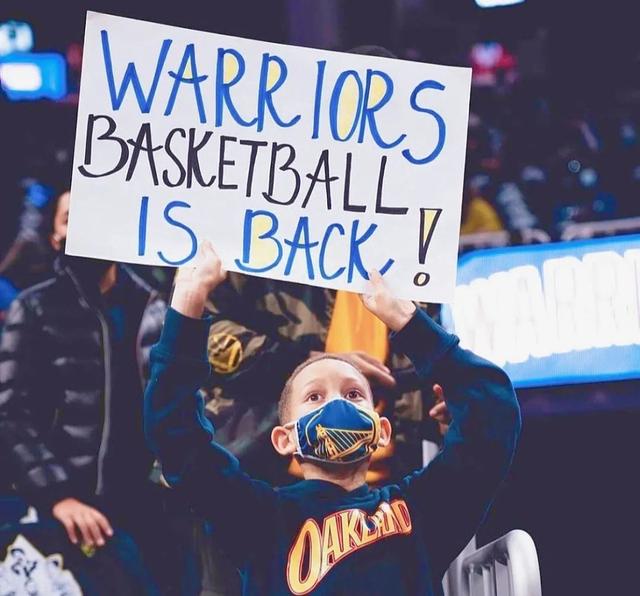 WARRIORS
BASKETBALL
IS BACK!
WARRI
OAKLAND